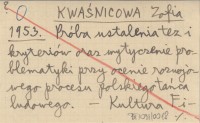 ?
KWAŚNICOWA Zofia
1953. Próba ustalenia tez i
kryteriów oraz wytyczenie pro=
blematyki przy ocenie rozwojo=
wego procesu polskiego tańca
ludowego. — Kultura Fi-